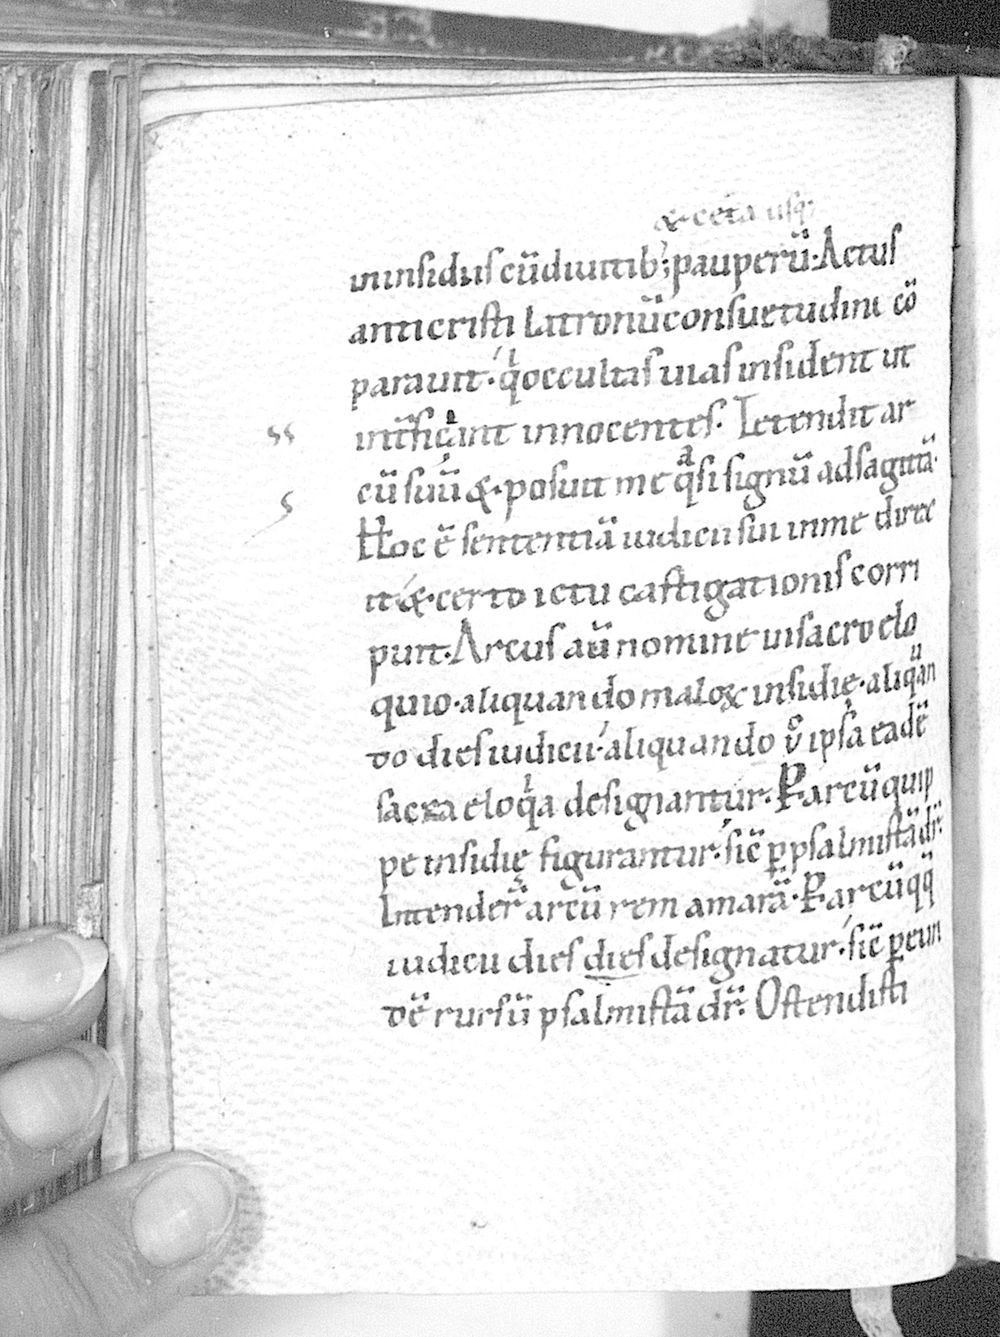 & cetã usq;
ininsidiis cũ diuitib; pauperũ. Actus
anticristi Latronũ consuetudini cõ
parauit. q̍ occultas uias insident ut
int̃ficiant innocentes. Tetendit ar
cũ suũ &. posuit me qͣsi signũ ad sagittã.
Hoc ẽ sententiã iudicii sui in me direx
it & certo ictu castigationis corri
puit. Arcus aũ nomine in sacro elo
quio. aliquando maloꝝ insidię. aliqũan
do dies iudicii. aliquando ů ipsa eadẽ
sacra eloq̍a designantur. P̱ arcũ quip
pe insidię figurantur. sic̃ ꝑ psalmistã dr̃.
Intender̃ arcũ rem amarã. P̱ arcũ qq̃
iudicii dies dies designatur. sic̃ ꝑ eun
dẽ rursũ psalmistã dr̃. Ostendisti